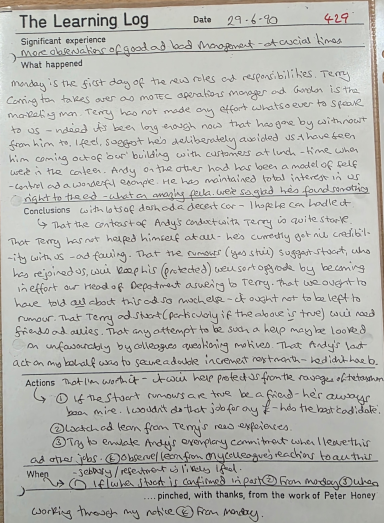 The Learning Log Date 29-6-90 429
Significant experience
More observations of good ad bad management - at crucial times
What happened
Monday is the first day of the new roles ad responsibilities. Terry
Carrington takes over as MOTEC operations manager ad Gordon is the
marketing man. Terry has not made any effort whatsoever to speak
to us - indeed it's been long enough now that has gone by with nowt
from him to, I feel, suggest he's deliberately avoided us. I have seen
him coming out of our building with customers at lunch-time when
we're in the canteen. Andy on the other had has been a model of self
-control ad a wonderful example. He has maintained total interest in us
right to the ed - what an amazing fella. We're so glad he's found something
Conclusions with lots of dosh ad a decent car - I hope he can hadle it
↳ That the contrast of Andy's conduct with Terry is quite stark
That Terry has not helped himself at all - he's currently got nil credibil-
ity with us - ad fading. That the rumours (yes still) suggest Stuart, who
has rejoined us, will keep his (protected) weu sort upgrade by becoming
in effort our Head of Department answering to Terry. That we ought to
have told all about this ad so much else - it ought not to be left to
rumour. That Terry ad Stuart (particularly if the above is true) will need
friends ad allies. That any attempt to be such a help may be looked
on unfavourably by colleagues questioning motives. That Andy's last
act on my behalf was to secure a double increment next month - he didn't have to.
Actions That I'm worth it - it will help protect us from the ravages of
↳ ① If the Stuart rumours are true be a friend - he's always
been mine. I wouldn't do that job for any £ - he's the best cadidate.
② Watch ad learn from Terry's new experiences.
③ Try to emulate Andy's exemplary commitment when I leave this
ad other jobs. ④ Observe/learn from any colleague's reactions to all this
When - jealousy/resentment is likely I feel.
↳ ① If/when Stuart is confirmed in post ② From Monday ③ When
.... pinched, with thanks, from the work of Peter Honey
working through my notice ④ From Monday.